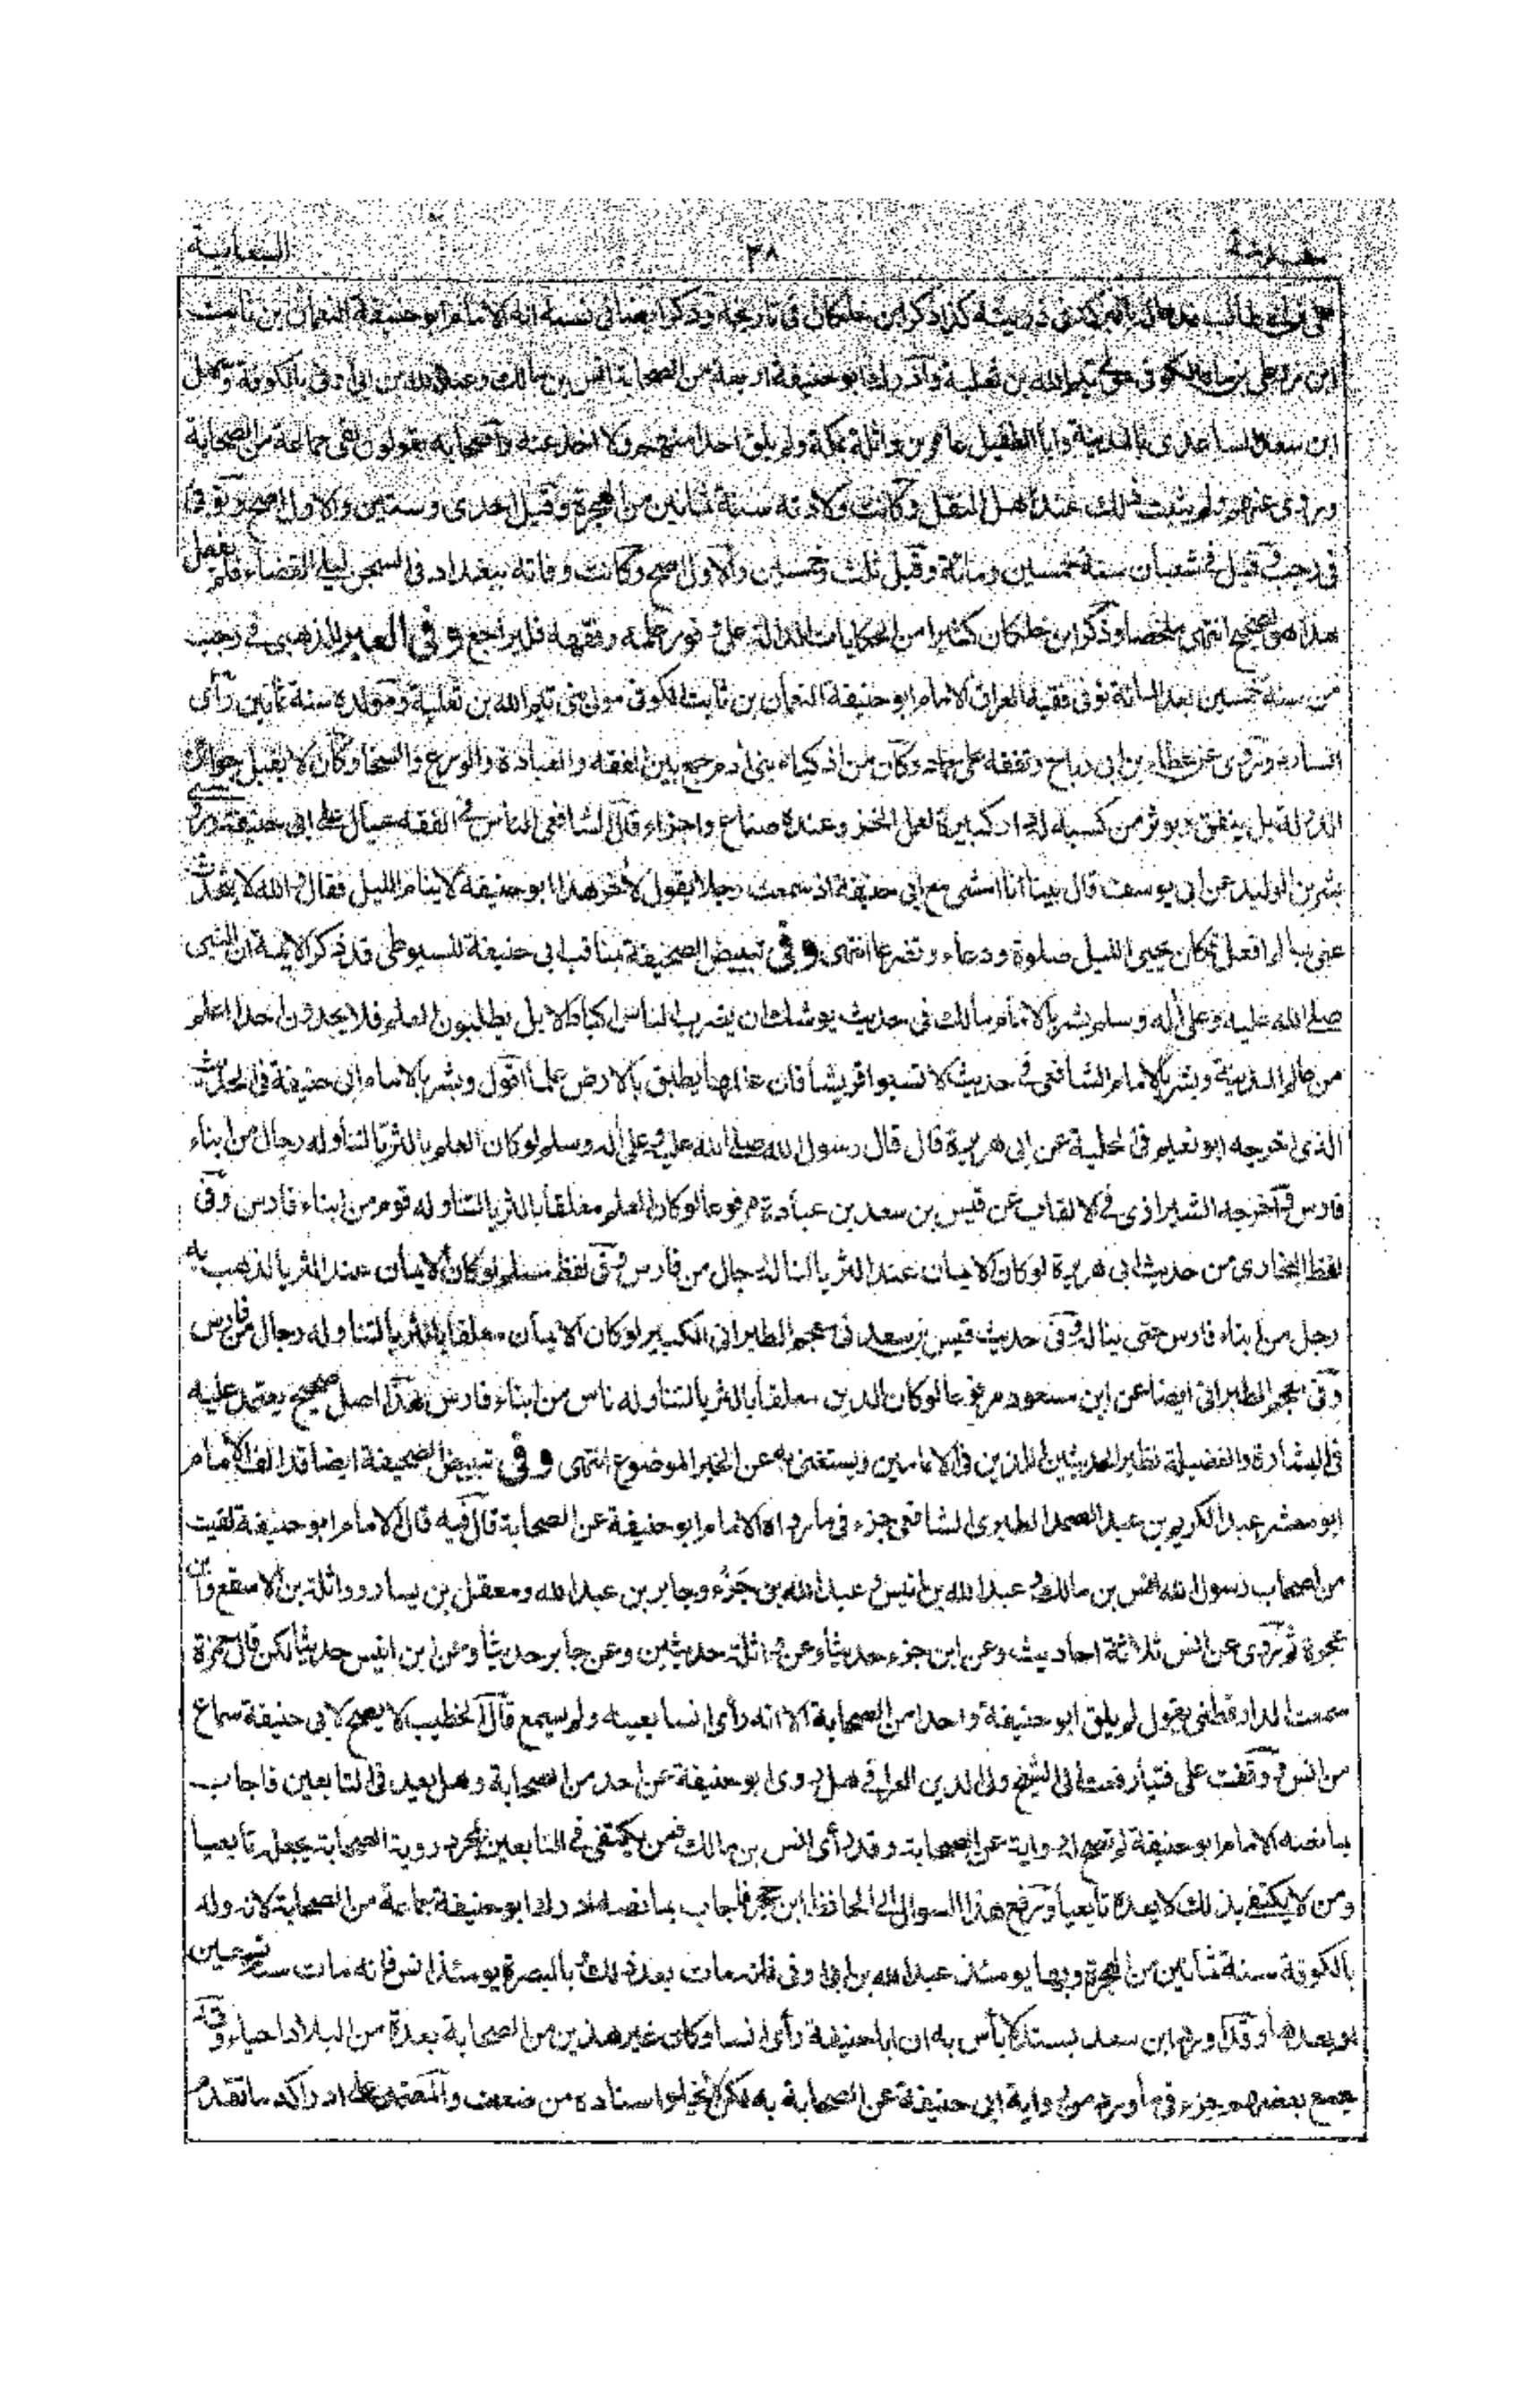 مقدمة ٣٨ السعاية
على بن ابى طالب فدعا له بالبركة فى ذريته كذا ذكر ابن خلكان فى تاريخه وذكر ايضا فى نسبه انه الامام ابو حنيفة النعمان بن ثابت
ابن زوطى بن ماه الكوفى مولى تيم الله بن ثعلبة وادرك ابو حنيفة اربعة من الصحابة انس بن مالك وعبد الله بن ابى اوفى بالكوفة وسهل
ابن سعد الساعدى بالمدينة وابا الطفيل عامر بن واثلة بمكة ولم يلق احدا منهم ولا اخذ عنه واصحابه يقولون لقى جماعة من الصحابة
وروى عنهم ولم يثبت ذلك عند اهل النقل وكانت ولادته سنة ثمانين من الهجرة وقيل احدى وستين والاول اصح وتوفى
فى رجب وقيل فى شعبان سنة خمسين ومائة وقيل ثلث وخمسين والاول اصح وكانت وفاته ببغداد فى السجن ليلى القضاء فلم يفعل
هذا هو الصحيح انتهى ملخصا وذكر ابن خلكان كثيرا من الحكايات الدالة على وفور علمه وفقهه فليراجع وفى العبر للذهبى فى رجب
من سنة خمسين بعد المائة توفى فقيه العراق الامام ابو حنيفة النعمان بن ثابت الكوفى مولى بنى تيم الله بن ثعلبة ومولده سنة ثمانين رأى
انسا وروى عن عطاء بن ابى رباح وتفقه على حماد وكان من اذكياء بنى أدم جمع بين الفقه والعبادة والورع والسخا وكان لا يقبل جوائز
الدولة بل ينفق ويوثر من كسبه له دار كبيرة لعمل الخز وعنده صناع واجراء قال الشافعى الناس فى الفقه عيال على ابى حنيفة وروى
بشر بن الوليد عن ابى يوسف قال بينا انا امشى مع ابى حنيفة اذ سمعت رجلا يقول لأخر هذا ابو حنيفة لا ينام الليل فقال والله لا يتحدث
عنى بما لم افعل فكان يحيى الليل صلوة ودعاء وتضرعا انتهى وفى تبييض الصحيفة بمناقب ابى حنيفة للسيوطى قد ذكر الايمة ان النبى
صلى الله عليه وعلى أله وسلم بشر بالامام مالك فى حديث يوشك ان يضرب الناس اكباد الابل يطلبون العلم فلا يجدون احدا اعلم
من عالم المدينة وبشر بالامام الشافعى فى حديث لا تسبوا قريشا فان عالمها يطبق بالارض علما اقول وبشر بالامام ابى حنيفة فى الحديث
الذى اخرجه ابو نعيم فى الحلية عن ابى هريرة قال قال رسول الله صلى الله عليه وعلى أله وسلم لو كان العلم بالثريا لتناوله رجال من ابناء
فارس واخرجه الشيرازى فى الالقاب عن قيس بن سعد بن عبادة مرفوعا لو كان العلم معلقا بالثريا لتناوله قوم من ابناء فارس وفى
لفظ البخارى من حديث ابى هريرة لو كان الايمان عند الثريا لناله رجال من فارس وفى لفظ مسلم لو كان الايمان عند الثريا لذهب به
رجل من ابناء فارس حتى يناله وفى حديث قيس بن سعد فى معجم الطبرانى الكبير لو كان الايمان معلقا بالثريا لتناوله رجال من فارس
وفى معجم الطبرانى ايضا عن ابن مسعود مرفوعا لو كان الدين معلقا بالثريا لتناوله ناس من ابناء فارس فهذا اصل صحيح يعتمد عليه
فى البشارة والفضيلة نظير الحديثين اللذين فى الامامين ويستغنى به عن الخبر الموضوع انتهى وفى تبييض الصحيفة ايضا قد الف الامام
ابو معشر عبد الكريم بن عبد الصمد الطبرى الشافعى جزء فى ما رواه الامام ابو حنيفة عن الصحابة قال فيه قال الامام ابو حنيفة لقيت
من اصحاب رسول الله انس بن مالك وعبد الله بن انيس وعبد الله بن جزء وجابر بن عبد الله ومعقل بن يسار وواثلة بن الاسقع وابن
عجرة ثم روى عن انس ثلاثة احاديث وعن ابن جزء حديثا وعن واثلة حديثين وعن جابر حديثا وعن ابن انيس حديثا لكن قال حمزة
سمعت الدارقطنى يقول لم يلق ابو حنيفة واحدا من الصحابة الا انه رأى انسا بعينه ولم يسمع قال الخطيب لا يصح لابى حنيفة سماع
من انس ووقفت على فتيا رفعت الى الشيخ ولى الدين العراقى هل روى ابو حنيفة عن احد من الصحابة وهل يعد فى التابعين فاجاب
بما نصه الامام ابو حنيفة لم تصح له رواية عن الصحابة وقد رأى انس بن مالك فمن يكتفى فى التابعين بمجرد روية الصحابة يجعله تابعيا
ومن لا يكتفى بذلك لا يعده تابعيا ورفع هذا السوال الى الحافظ ابن حجر فاجاب بما نصه ادرك ابو حنيفة جماعة من الصحابة لانه ولد
بالكوفة سنة ثمانين من الهجرة وبها يومئذ عبد الله بن ابى اوفى فانه مات بعد ذلك وبالبصرة يومئذ انس فانه مات سنة تسعين
او بعدها وقد اورد ابن سعد بسند لا بأس به ان ابا حنيفة رأى انسا وكان غير هذين من الصحابة بعدة من البلاد احياء وقد
جمع بعضهم جزء فى ما ورد من رواية ابى حنيفة عن الصحابة به لكن لا يخلو اسناده من ضعف والمعتمد على ادراكه ما تقدم